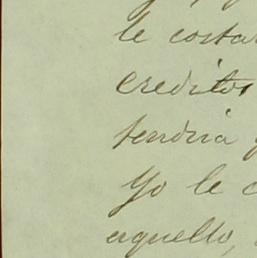 le costa
creditos
tendria
Yo le c
aquello,